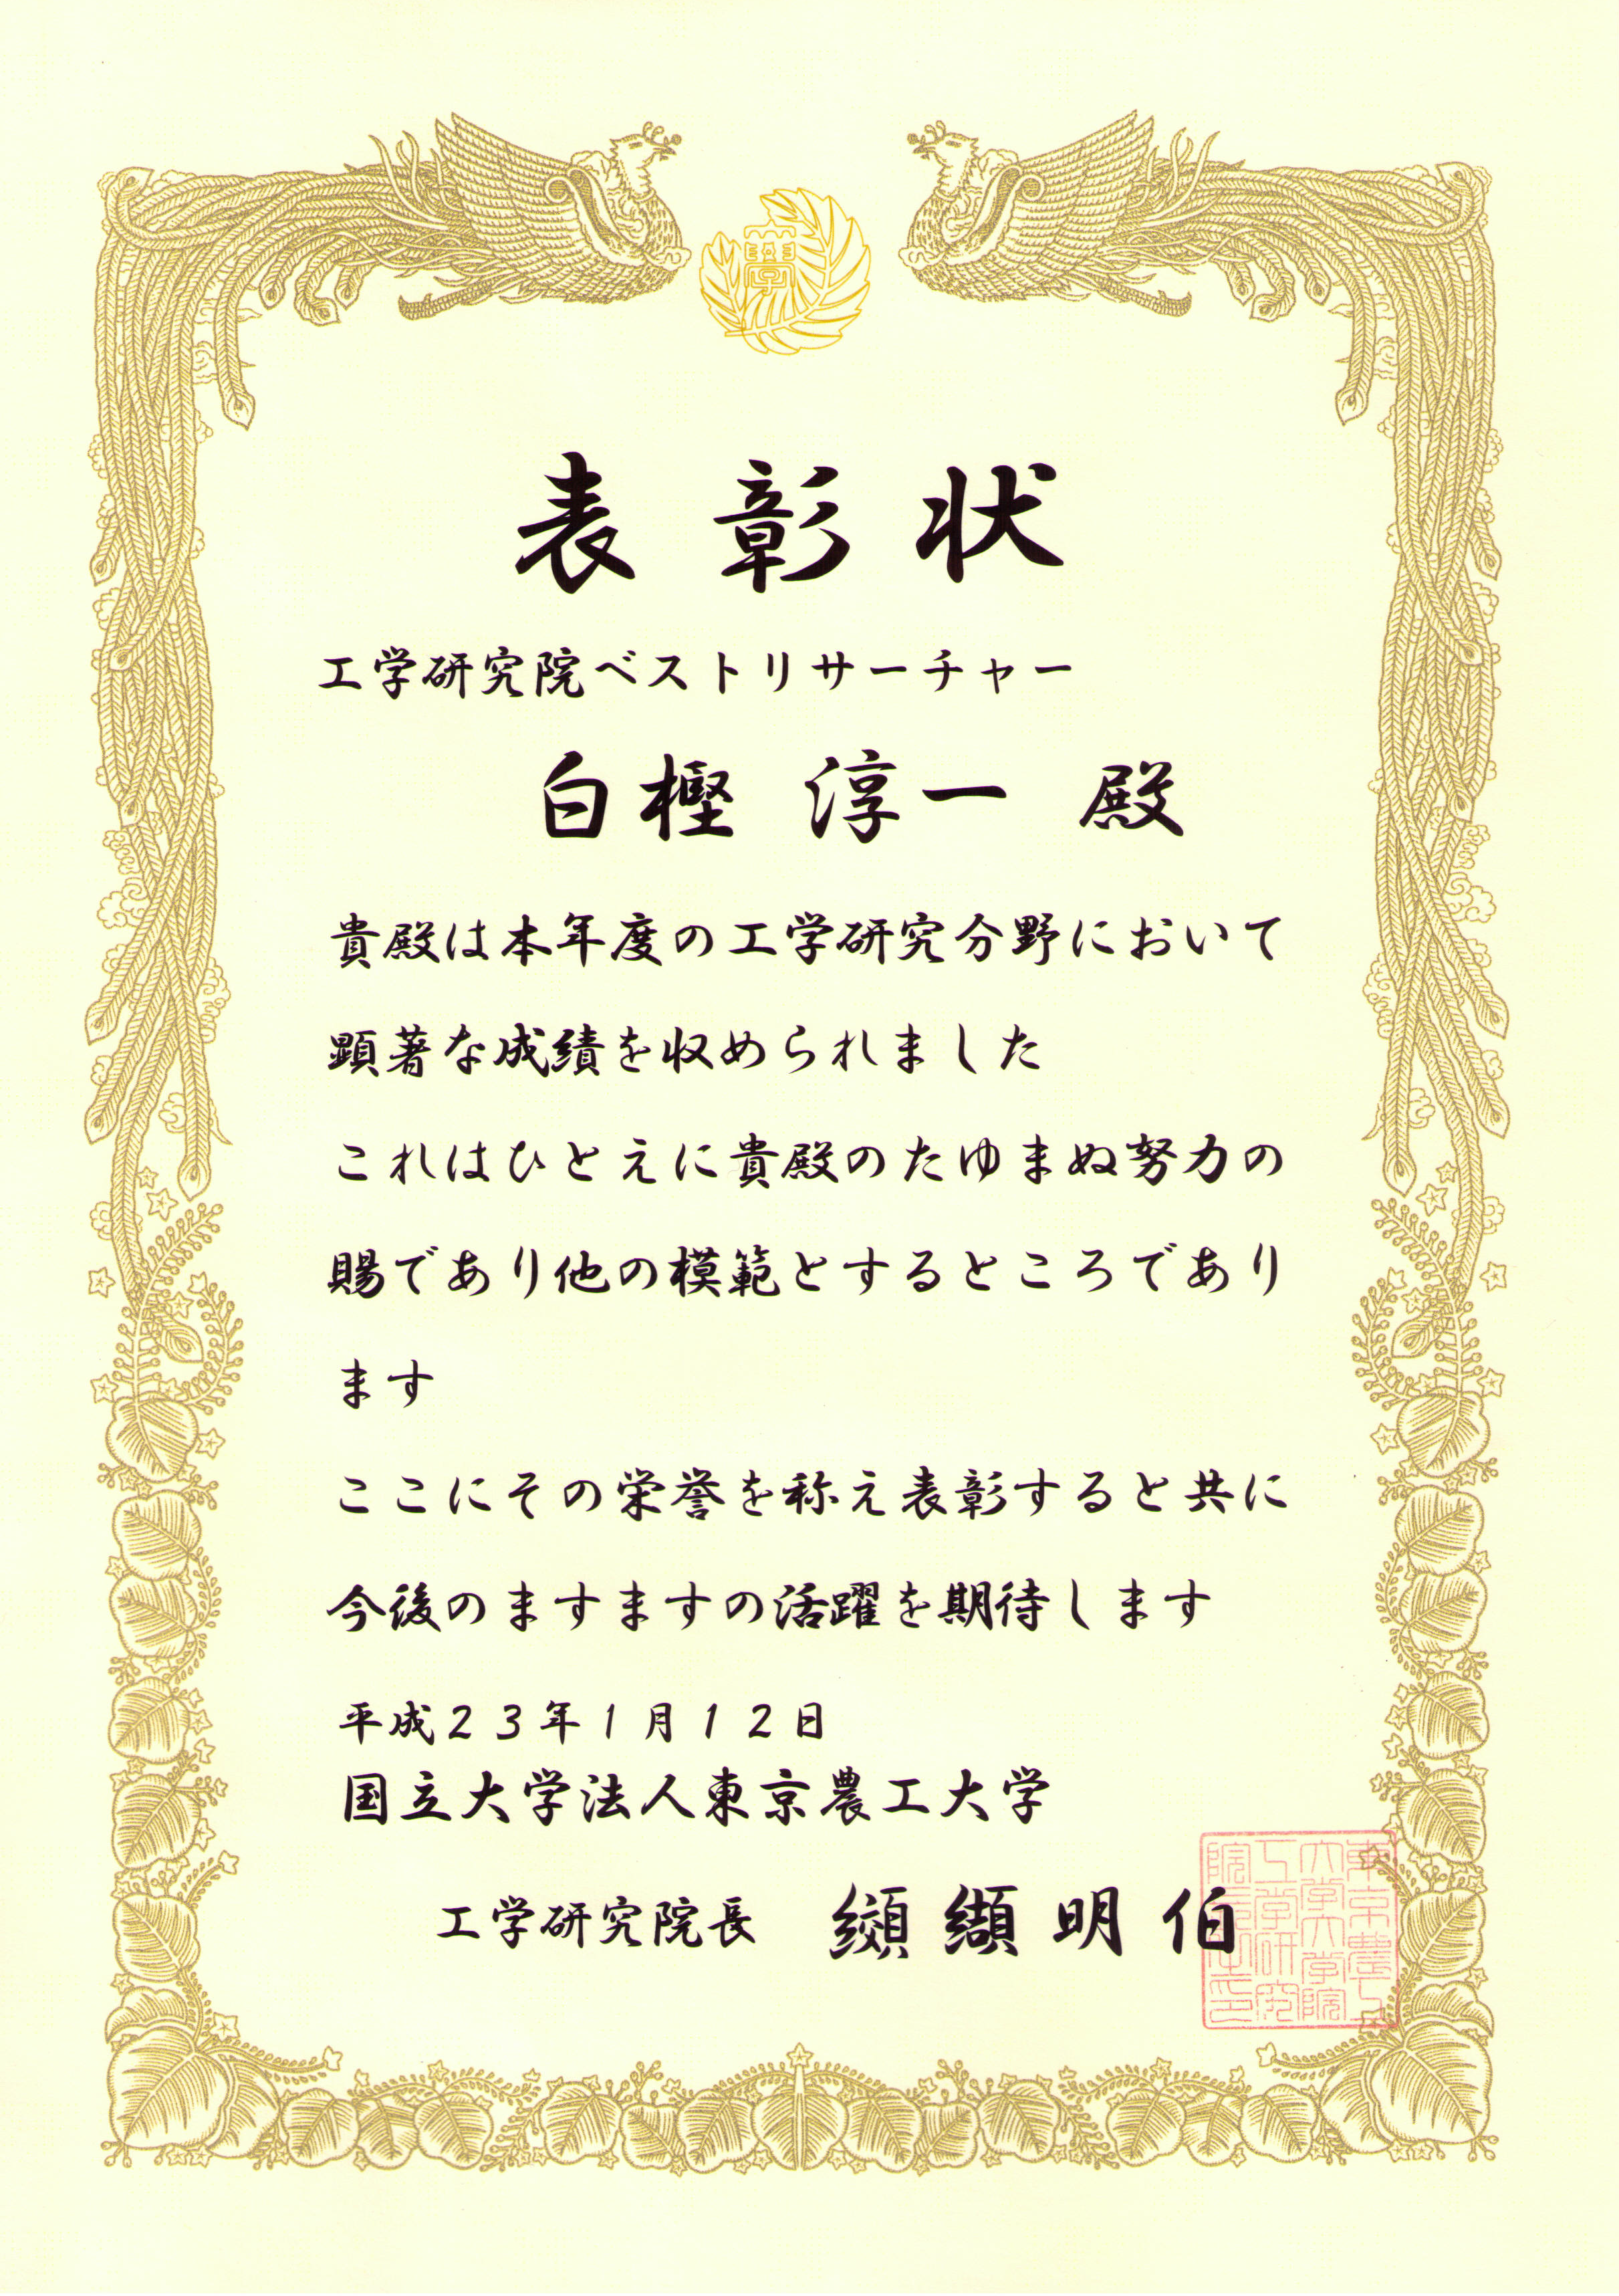 學
表彰状
工学研究院ベストリサーチャー
白樫 淳一 殿
貴殿は本年度の工学研究分野において
顕著な成績を収められました
これはひとえに貴殿のたゆまぬ努力の
賜であり他の模範とするところであり
ます
ここにその栄誉を称え表彰すると共に
今後のますますの活躍を期待します
平成23年1月12日
国立大学法人東京農工大学
工学研究院長 纐纈明伯
東京農工
大学大学院
工学研究
院長之印